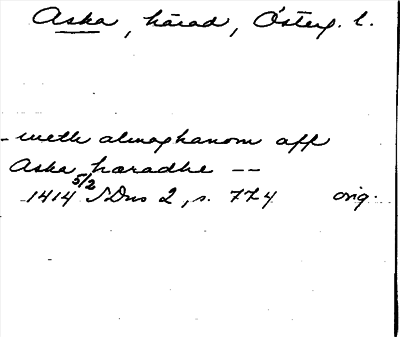 Aska, härad, Österg. l.
- weth almoghanom aff
Aska hæradhe --
1414 5/2 SDns 2, s. 774 orig.